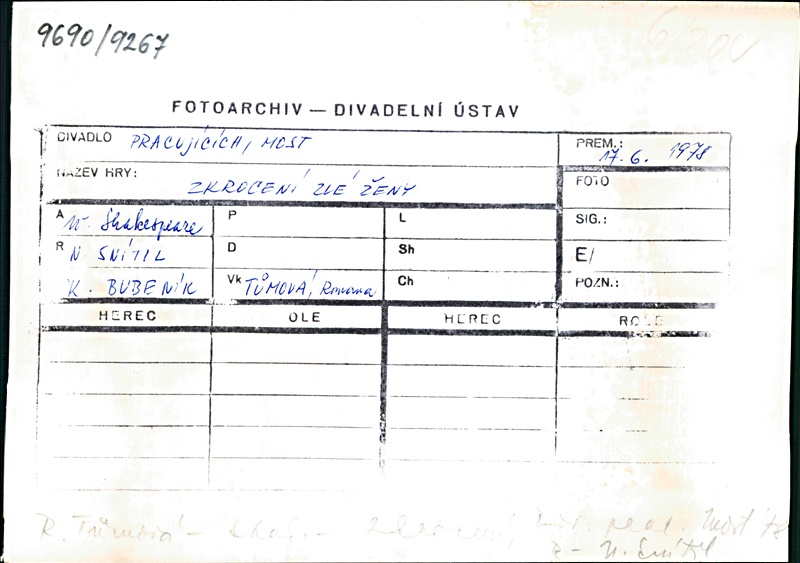 9690/9267
FOTOARCHIV — DIVADELNÍ ÚSTAV
DIVADLO PRACUJÍCÍCH, MOST
PREM.: 17. 6. 1978
NÁZEV HRY: ZKROCENÍ ZLÉ ŽENY
FOTO
A W. Shakespeare
P
L
SIG.:
R N. SNÍTIL
D
Sh
E/
K. BUBENÍK
Vk TŮMOVÁ, Romana
Ch
POZN.:
HEREC OLE HEREC ROLE
R. Tůmová - Shak. - Zkrocení, Most 78
R - N. Snítil